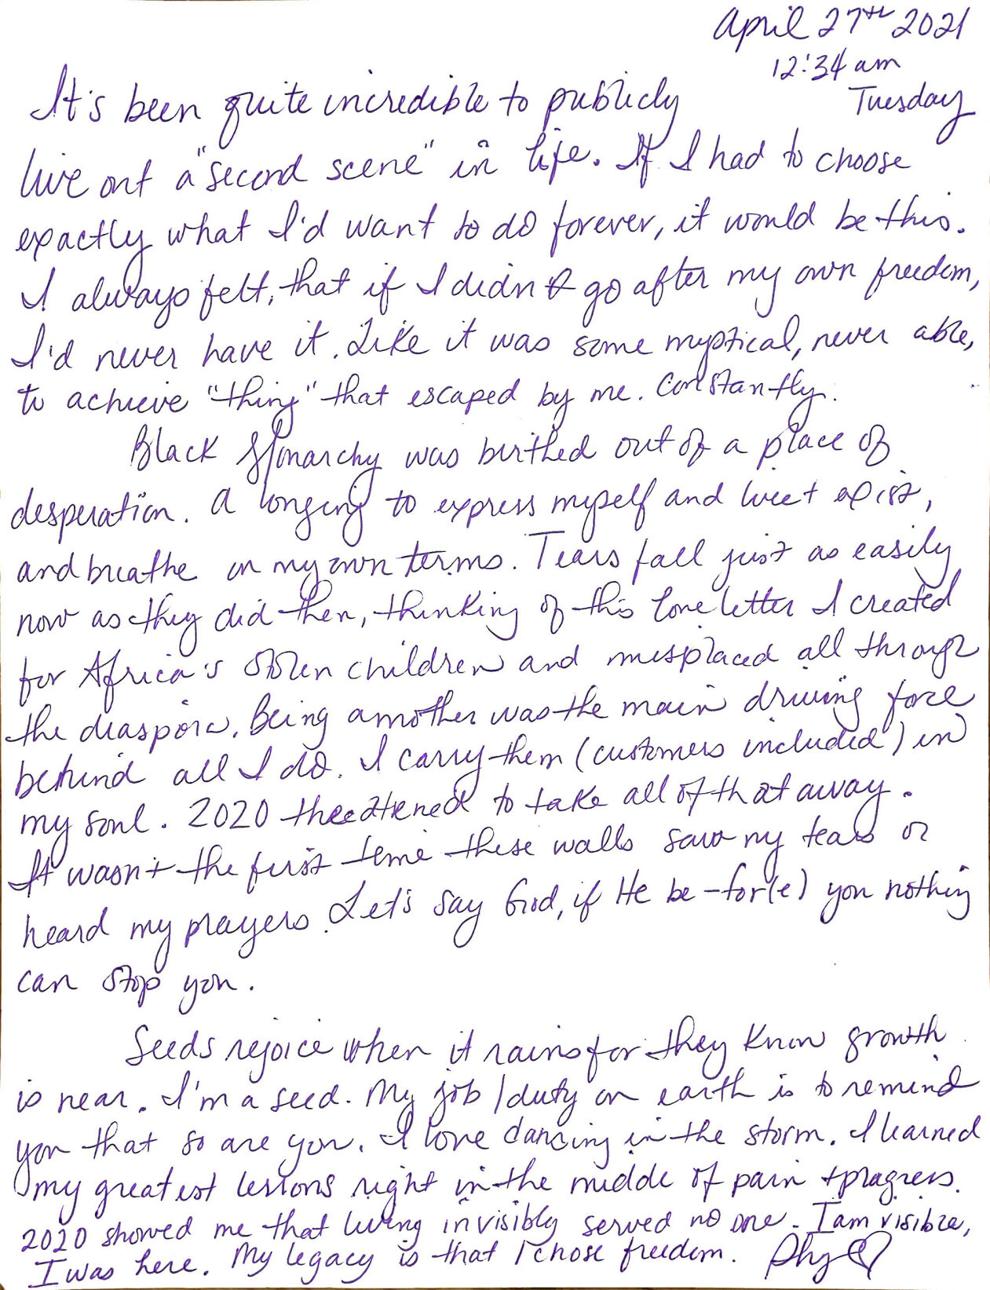 April 27TH 2021
12:34 am
Tuesday
It's been quite incredible to publicly
live out a "second scene" in life. If I had to choose
exactly what I'd want to do forever, it would be this.
I always felt, that if I didn't go after my own freedom,
I'd never have it. Like it was some mystical, never able,
to achieve "thing" that escaped by me. Constantly.
Black Monarchy was birthed out of a place of
desperation. A longing to express myself and exist,
and breathe on my own terms. Tears fall just as easily
now as they did then, thinking of this love letter I created
for Africa's stolen children and misplaced all through
the diaspora. Being a mother was the main driving force
behind all I do. I carry them (customers included) in
my soul. 2020 threatened to take all of that away.
It wasn't the first time these walls saw my tears or
heard my prayers. Let's say God, if He be-for(e) you nothing
can stop you.
Seeds rejoice when it rains for they know growth
is near. I'm a seed. My job/duty on earth is to remind
you that so are you. I love dancing in the storm. I learned
my greatest lessons right in the middle of pain + progress.
2020 showed me that living invisibly served no one. I am visible,
I was here. My legacy is that I chose freedom.